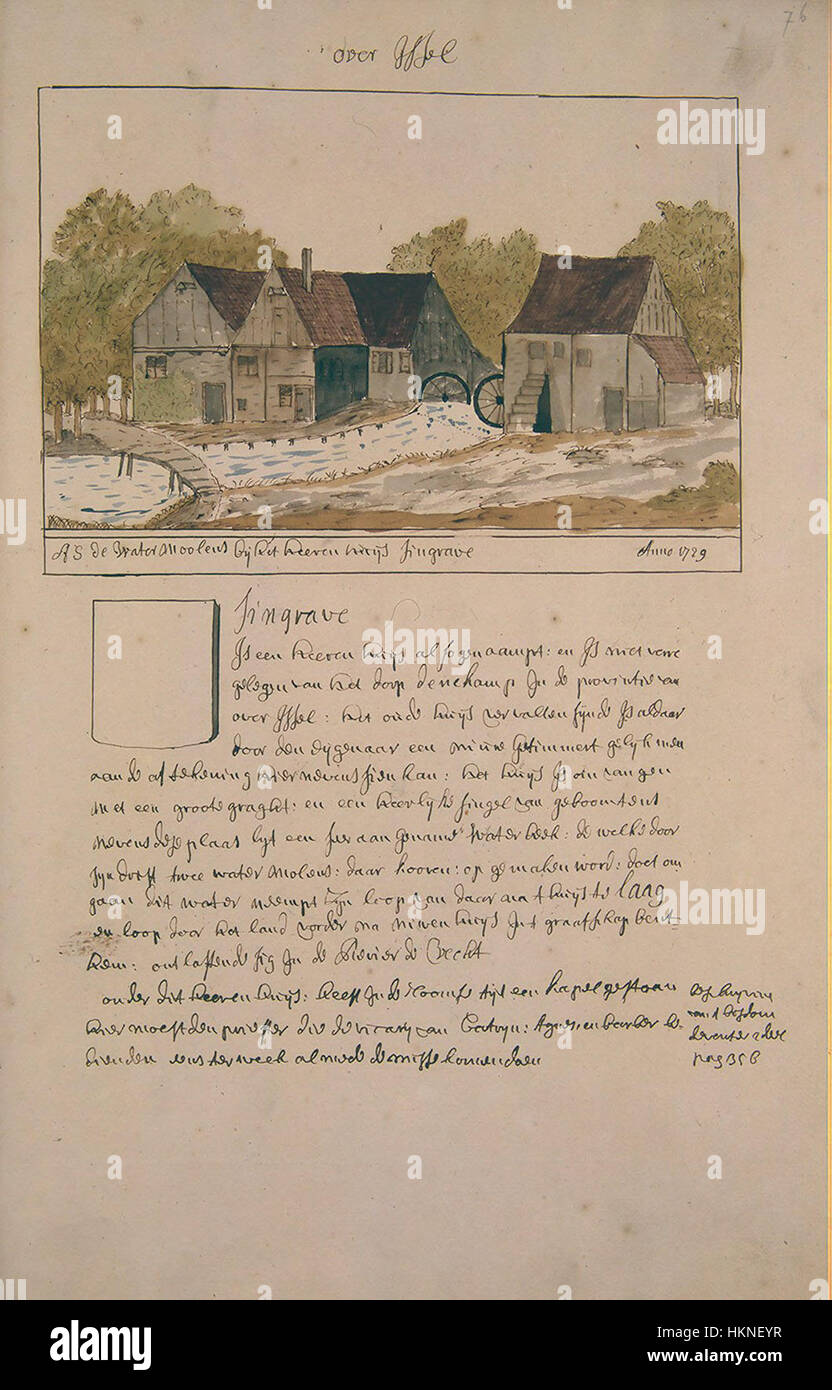 76
over Jssel
AS de Water Moolens bij het heeren huijs Singrave
Anno 1729
Singrave
Js een heeren huijs also genaampt: en Js niet verre
gelegen van het dorp denekamp Jn de provintie van
over Jssel: het oude huijs vervallen sijnde Js aldaar
door den eijgenaar een nieuw getimmert gelijk men
aan de aftekening hier nevens sien kan: het huijs Js om vangen
met een groote graght: en een heerlijke singel van geboomtens
nevens dese plaats lijt een seer aangename water beek: de welke door
sijn drift twee water molens: daar kooren: op gemalen word: doet om
gaan dit water neempt sijn loop van daar na t huijs te laag
en loop door het land vorder na niwen huijs Jnt graafschap bent
hem: ontlastende sig Jn de Revier de Vecht
onder dit heeren huijs: heeft Jn de Roomse tijt een kapel gestaan
hier moest den priester die de vicary van Catryn: Agnes, en barber be
dienden eens ter week al mede de misse komen doen
beschryvin
van t bisdom
deventer 2 deel
pag 356
a
alamy
Image ID: HKNEYR
www.alamy.com